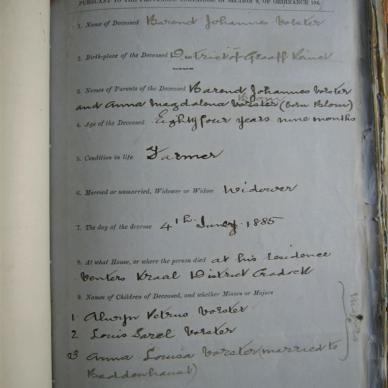 PURSUANT TO THE PROVISIONS CONTAINED IN SECTION 9, OF ORDINANCE 104.
1. Name of Deceased Barend Johannes Vorster
2. Birth-place of the Deceased District of Graaff Reinet
3. Names of Parents of the Deceased Barend Johannes Vorster
and Anna Magdalena Vorster (born Blom)
4. Age of the Deceased Eighty four years nine months
5. Condition in life Farmer
6. Married or unmarried, Widower or Widow Widower
7. The day of the decease 4th 1885
8. At what House, or where the person died at his residence
Venters Kraal District Cradock
9. Names of Children of Deceased, and whether Minors or Majors
1 Alwyn Petrus Vorster
2 Louis Sarel Vorster
3 Anna Louisa Vorster (married to